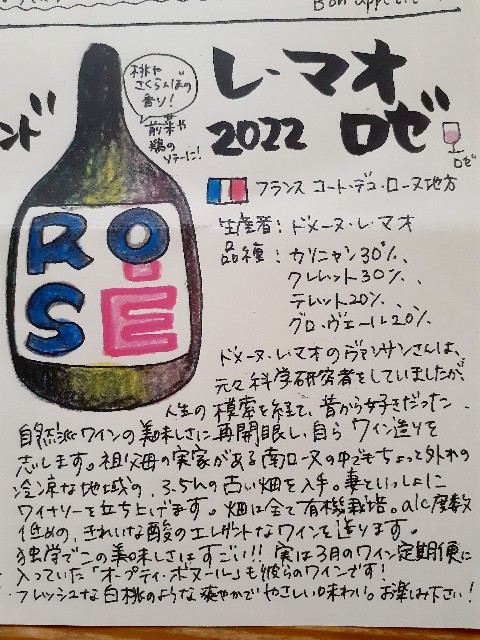 Bon appétit
ンド
桃や
さくらんぼの
香り!
前菜や
鶏の
ソテーに!
レ・マオ
2022 ロゼ
ロゼ
フランス コート・デュ・ローヌ地方
生産者: ドメーヌ・レ・マオ
品種: カリニャン30%、
クレレット30%、
テレット20%、
グロ・ヴェール20%
ROSE
ドメーヌ・レ・マオのヴァンサンさんは、
元々科学研究者をしていましたが、
人生の模索を経て、昔から好きだった
自然派ワインの美味しさに再開眼し、自らワイン造りを
志します。祖父母の実家がある南ローヌの中でもちょっと外れの
冷涼な地域の、3.5haの古い畑を入手。妻といっしょに
ワイナリーを立ち上げます。畑は全て有機栽培。alc度数
低めの、きれいな酸のエレガントなワインを造ります。
独学でこの美味しさはすごい!! 実は3月のワイン定期便に
入っていた「オープティ・ボヌール」も彼らのワインです!
フレッシュな白桃のような爽やかでやさしい味わい。お楽しみ下さい!